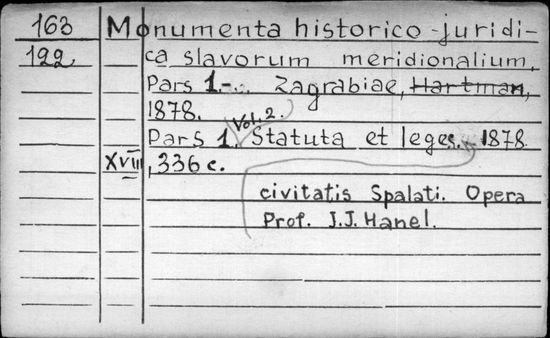 163 Monumenta historico-juridi-
122 ca slavorum meridionalium.
Pars 1.-.. Zagrabiae, Hartman,
1878.
Vol. 2.
Pars 1. Statuta et leges. 1878.
XVIII, 336 c.
civitatis Spalati. Opera
Prof. J.J. Hanel.